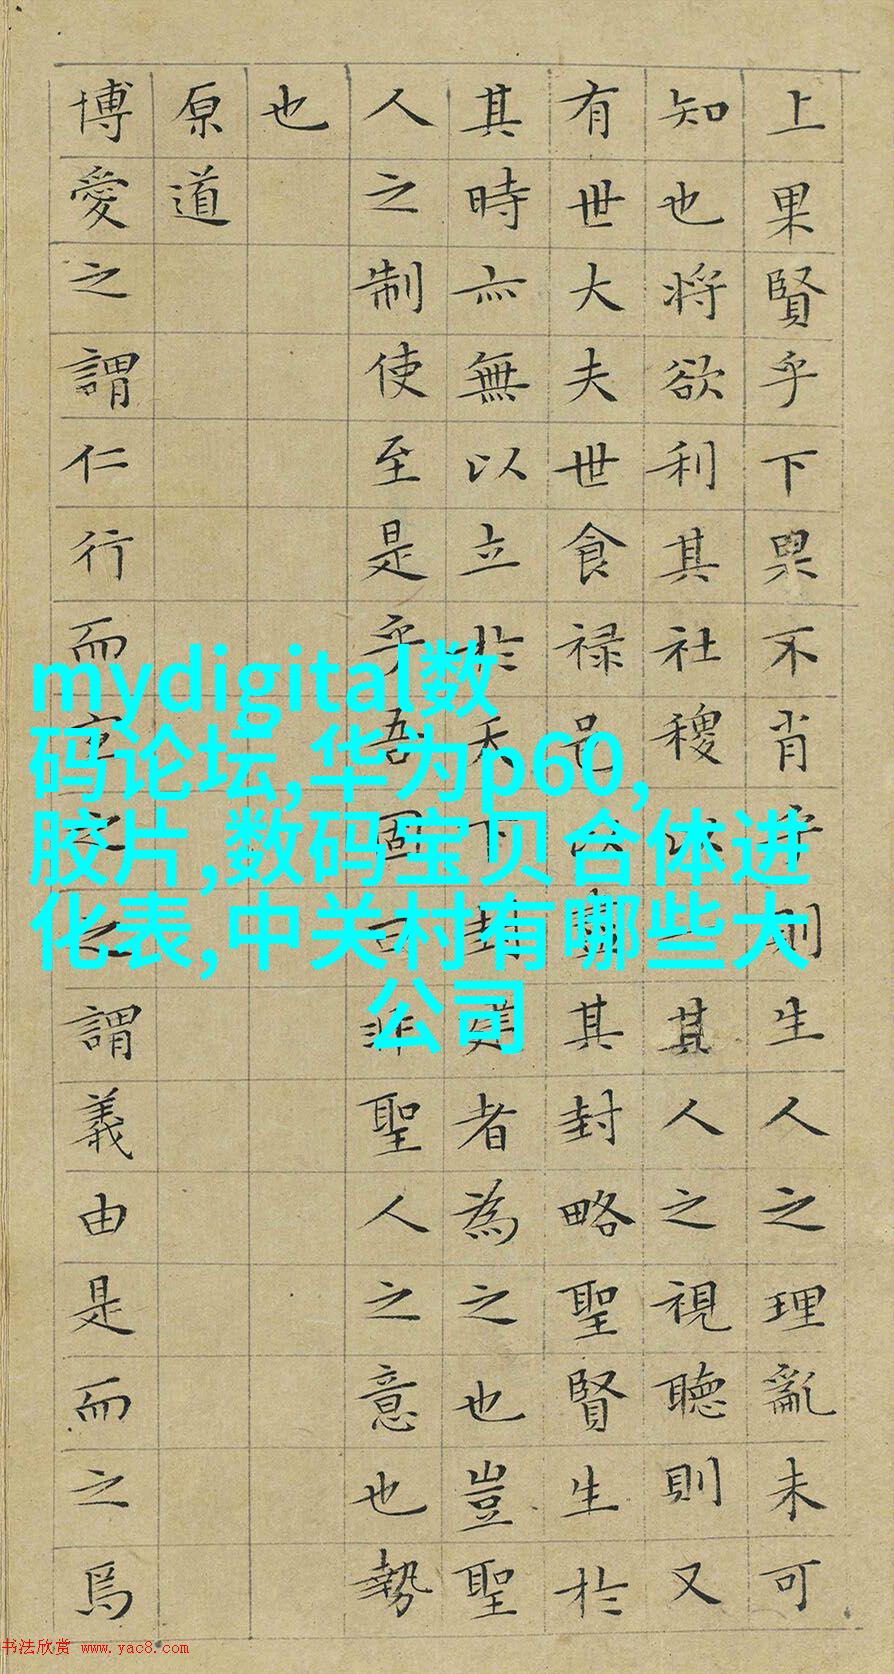 上果賢乎下果不肖乎則生人之理亂未可
知也將欲利其社稷以一其人之視聽則又
有世大夫世食禄邑以盡其封略聖賢生於
其時亦無以立於天下封建者為之也豈聖
人之制使至是乎吾固曰非聖人之意也勢
也
原道
博愛之謂仁行而宜之之謂義由是而之焉
mydigital数
码论坛,华为p60,
胶片,数码宝贝合体进
化表,中关村有哪些大
公司
书法欣赏 www.yac8.com